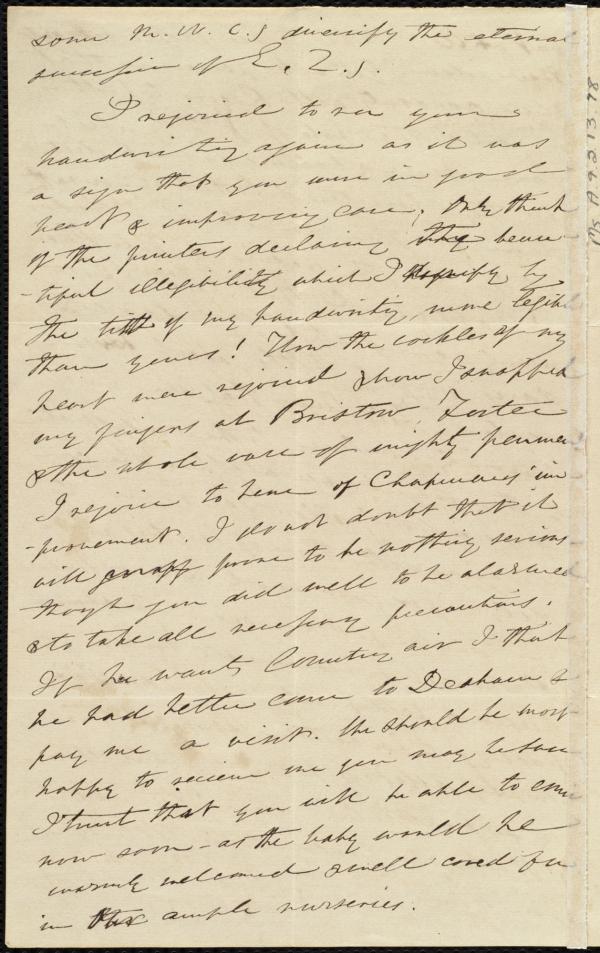 some M. W. C.s diversify the eternal
succession of E. Q.s.
I rejoiced to see your
handwriting again as it was
a sign that you were in good
heart & improving case. Only think
of the printers declaring the beau-
-tiful illegibility which I signify by
the title of my handwriting, more legible
than yours! How the cockles of my
heart were rejoiced & how I snapped
my fingers at Bristow, Foster
& the whole race of mighty penmen
I rejoice to hear of Chapman's im
-provement. I do not doubt that it
will prove to be nothing serious
though you did well to be alarmed
& to take all necessary precautions.
If he wants Country air I think
he had better come to Dedham &
pay me a visit. We should be most
happy to receive me you may be sure
I trust that you will be able to come
now soon – as the baby would be
warmly welcomed & well cared for
in ample nurseries.
Ms A.9.2.13.78